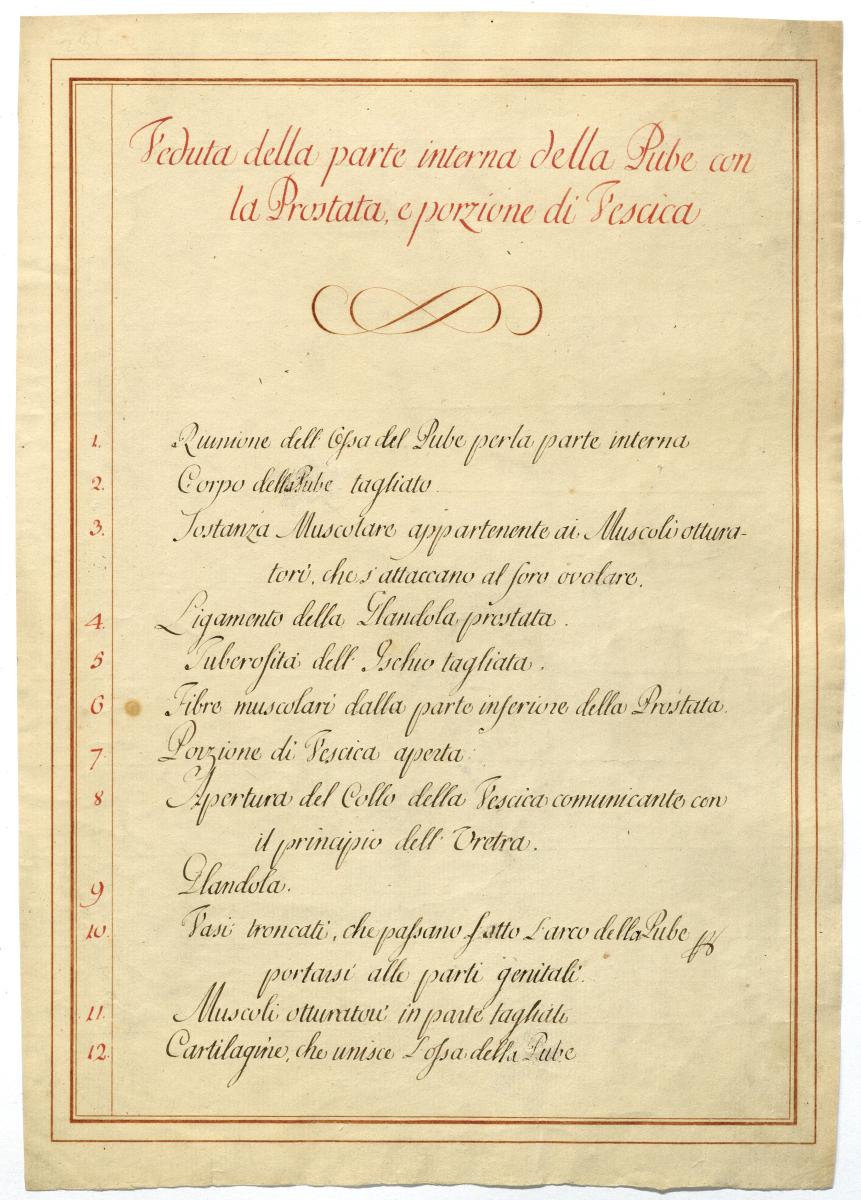 Veduta della parte interna della Pube con
la Prostata, e porzione di Vescica
1. Riunione dell' Ossa del Pube per la parte interna
2. Corpo della Pube tagliato
3. Sostanza Muscolare appartenente ai Muscoli ottura-
tori, che s'attaccano al foro ovolare.
4. Ligamento della Glandola prostata.
5 Tuberosità dell' Ischio tagliata.
6 Fibre muscolari dalla parte inferiore della Prostata.
7. Porzione di Vescica aperta
8 Apertura del Collo della Vescica comunicante con
il principio dell' Uretra.
9 Glandola.
10. Vasi troncati, che passano sotto l'arco della Pube
portarsi alle parti genitali.
11. Muscoli otturatori in parte tagliati
12. Cartilagine, che unisce l'ossa della Pube